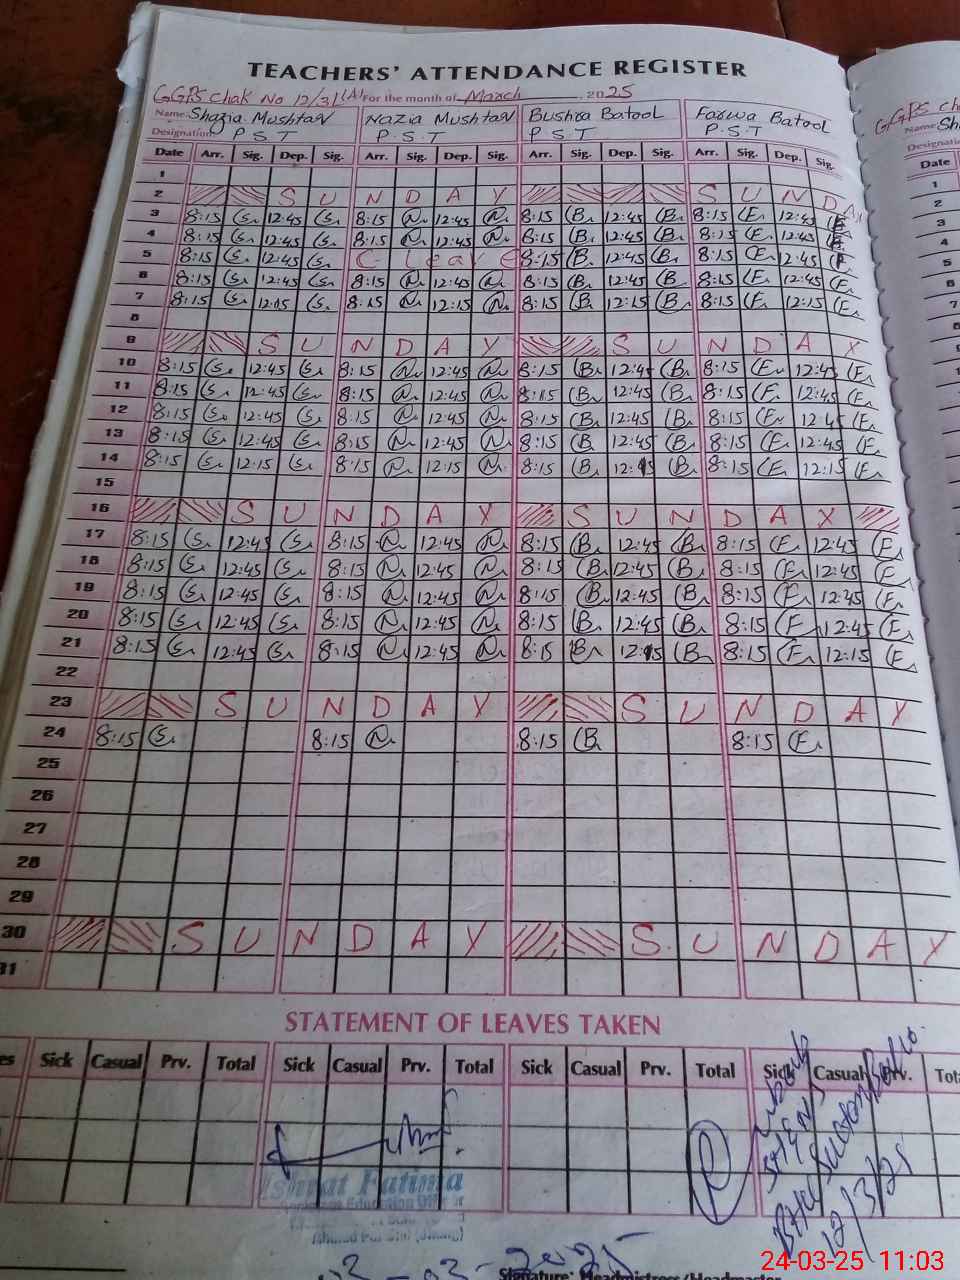 TEACHERS' ATTENDANCE REGISTER
GGPS Chak No 12/31(A) For the month of March, 2025
Name Shazia Mushtaq Nazia Mushtaq Bushra Batool Farwa Batool
Designation P.S.T P.S.T P.S.T P.S.T
Date Arr. Sig. Dep. Sig. Arr. Sig. Dep. Sig. Arr. Sig. Dep. Sig. Arr. Sig. Dep. Sig.
1
2 SUNDAY SUNDAY
3 8:15 12:45 8:15 12:45 8:15 12:45 8:15 12:45
4 8:15 12:45 8:15 12:45 8:15 12:45 8:15 12:45
5 8:15 12:45 C-leave 8:15 12:45 8:15 12:45
6 8:15 12:45 8:15 12:45 8:15 12:45 8:15 12:45
7 8:15 12:15 8:15 12:15 8:15 12:15 8:15 12:15
8
9 SUNDAY SUNDAY
10 8:15 12:45 8:15 12:45 8:15 12:45 8:15 12:45
11 8:15 12:45 8:15 12:45 8:15 12:45 8:15 12:45
12 8:15 12:45 8:15 12:45 8:15 12:45 8:15 12:45
13 8:15 12:45 8:15 12:45 8:15 12:45 8:15 12:45
14 8:15 12:15 8:15 12:15 8:15 12:15 8:15 12:15
15
16 SUNDAY SUNDAY
17 8:15 12:45 8:15 12:45 8:15 12:45 8:15 12:45
18 8:15 12:45 8:15 12:45 8:15 12:45 8:15 12:45
19 8:15 12:45 8:15 12:45 8:15 12:45 8:15 12:45
20 8:15 12:45 8:15 12:45 8:15 12:45 8:15 12:45
21 8:15 12:45 8:15 12:45 8:15 12:15 8:15 12:15
22
23 SUNDAY SUNDAY
24 8:15 8:15 8:15 8:15
25
26
27
28
29
30 SUNDAY SUNDAY
31
STATEMENT OF LEAVES TAKEN
Sick Casual Prv. Total Sick Casual Prv. Total Sick Casual Prv. Total Sick Casual Prv.
Ishrat Fatima
12/3/25
Signature: Headmistress/Headmaster
24-03-25 11:03
GGPS Chak
Name
Date
1
2
3
4
5
6
7